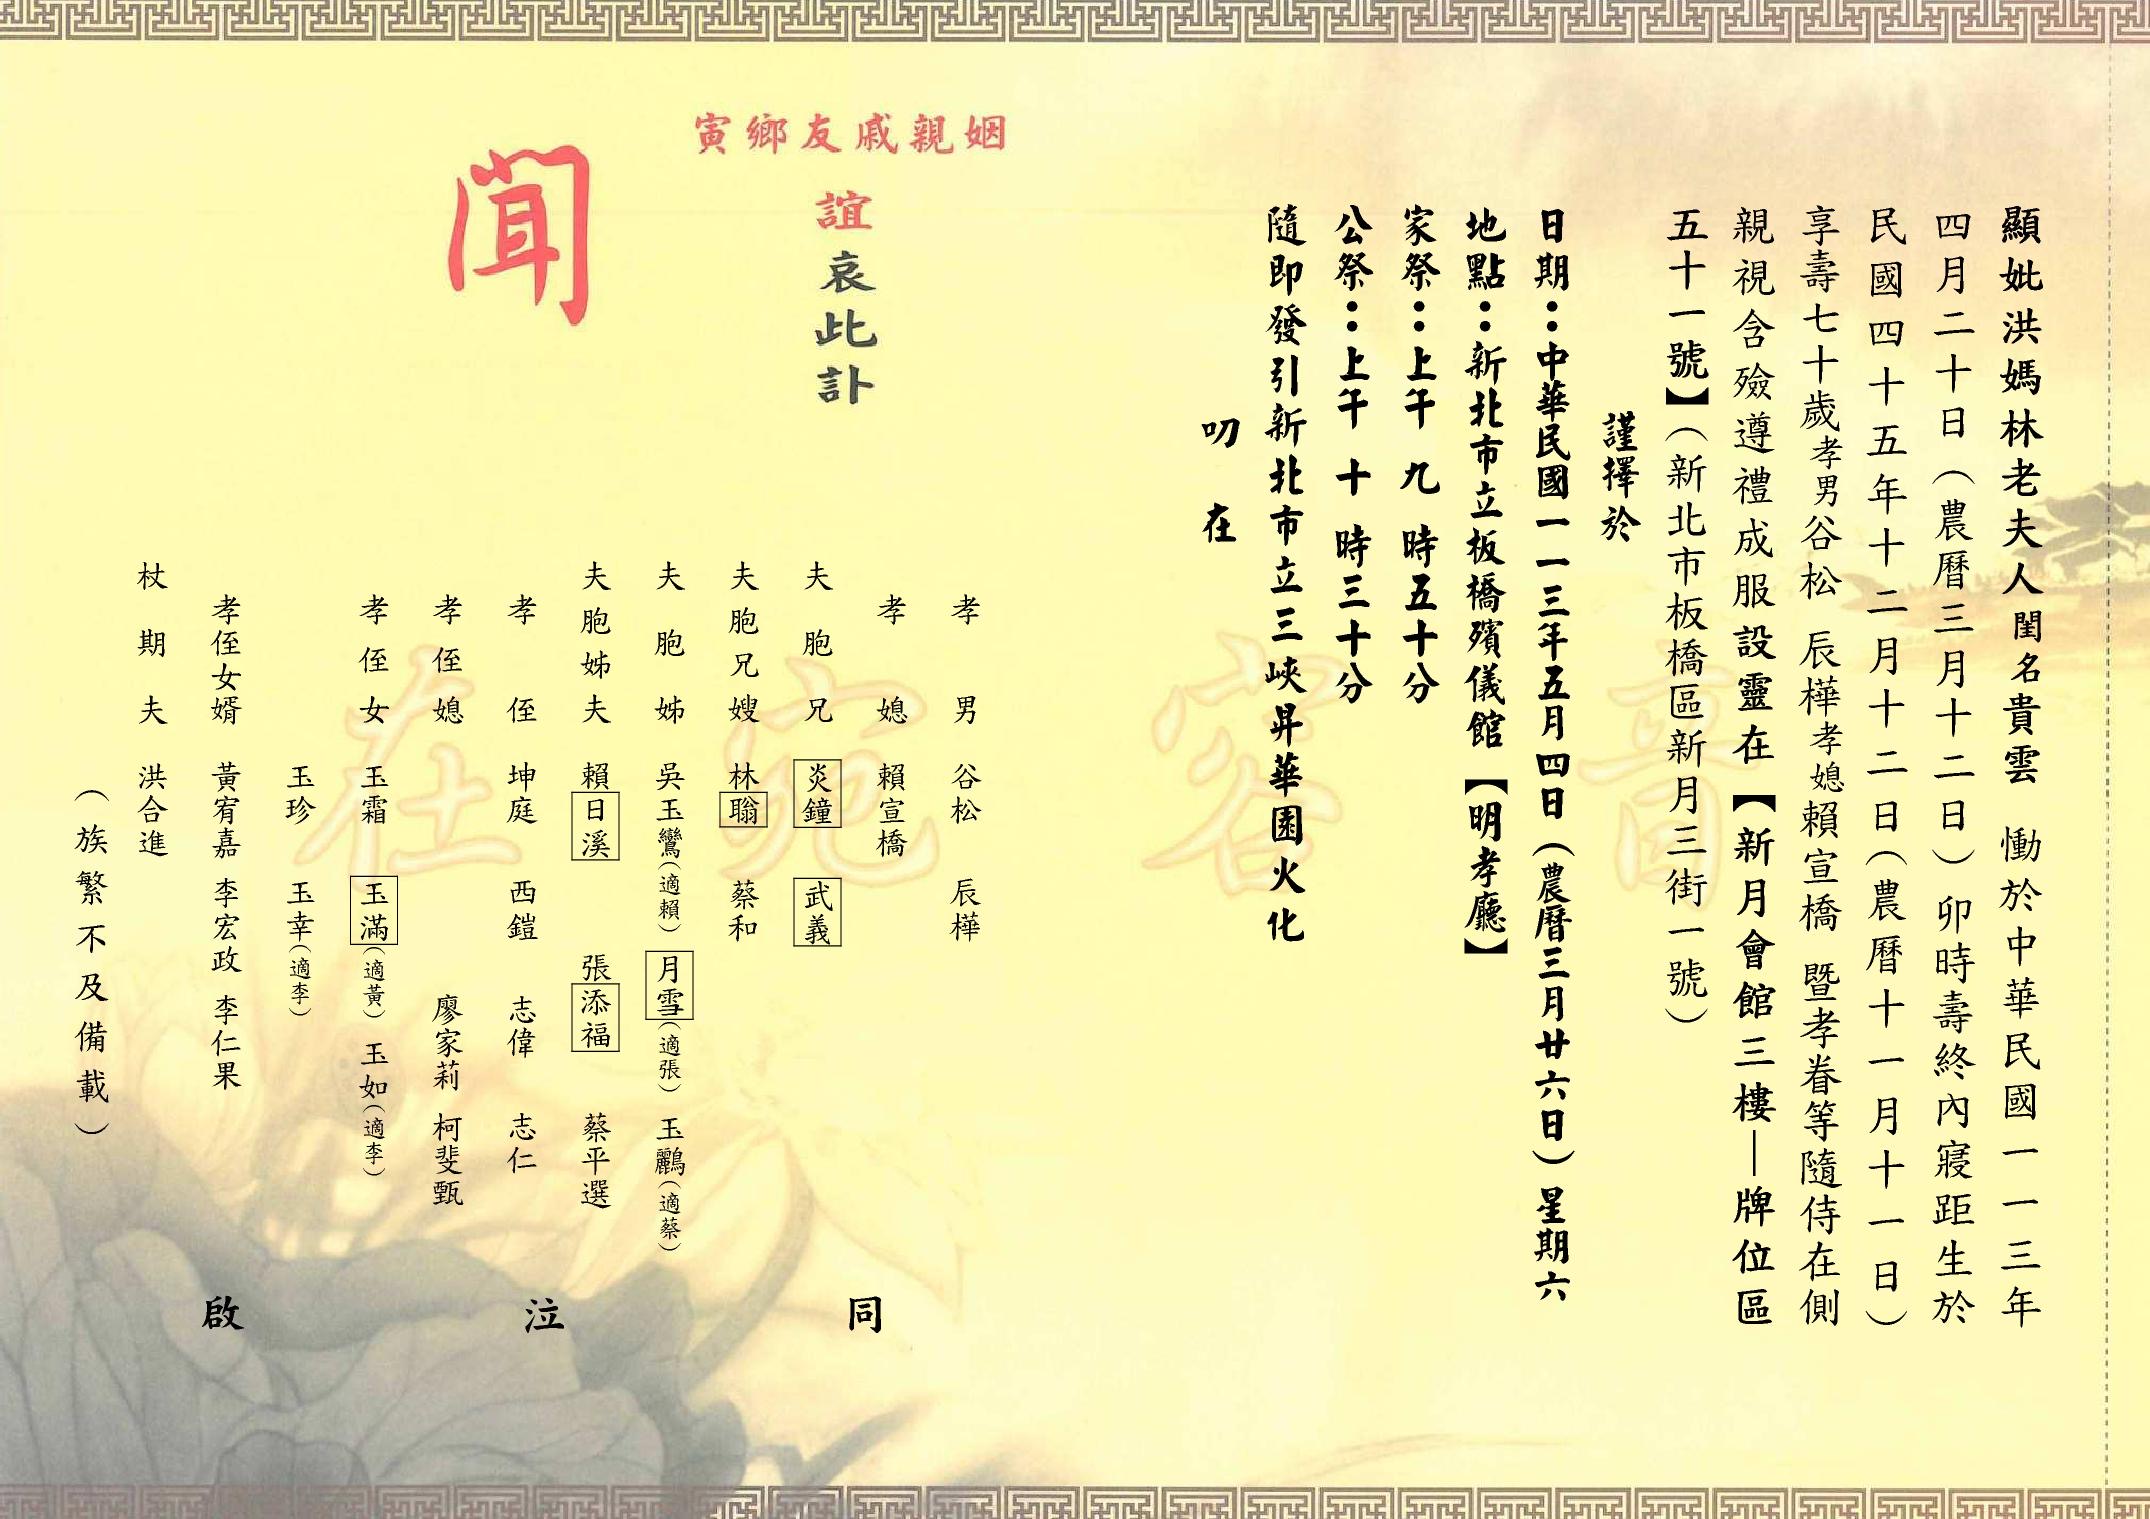 顯妣洪媽林老夫人閨名貴雲 慟於中華民國一一三年
四月二十日（農曆三月十二日）卯時壽終內寢距生於
民國四十五年十二月十二日（農曆十一月十一日）
享壽七十歲孝男谷松 辰樺孝媳賴宣橋 暨孝眷等隨侍在側
親視含殮遵禮成服設靈在【新月會館三樓—牌位區
五十一號】（新北市板橋區新月三街一號）
謹擇於
日期：中華民國一一三年五月四日（農曆三月廿六日）星期六
地點：新北市立板橋殯儀館【明孝廳】
家祭：上午 九 時五十分
公祭：上午 十 時三十分
隨即發引新北市立三峽昇華園火化
叨 在
姻親戚友鄉寅
誼哀此訃
聞
孝男 谷松 辰樺
孝媳 賴宣橋
夫胞兄 炎鐘 武義
夫胞兄嫂 林聪 蔡和
夫胞姊 吳玉鸞（適賴） 月雪（適張） 玉鸝（適蔡）
夫胞姊夫 賴日溪 張添福 蔡平選
孝侄 坤庭 西鎧 志偉 志仁
孝侄媳 廖家莉 柯斐甄
孝侄女 玉霜 玉滿（適黃） 玉如（適李）
玉珍 玉幸（適李）
孝侄女婿 黃宥嘉 李宏政 李仁果
杖期夫 洪合進
（族繁不及備載）
同 泣 啟
音 容 宛 在